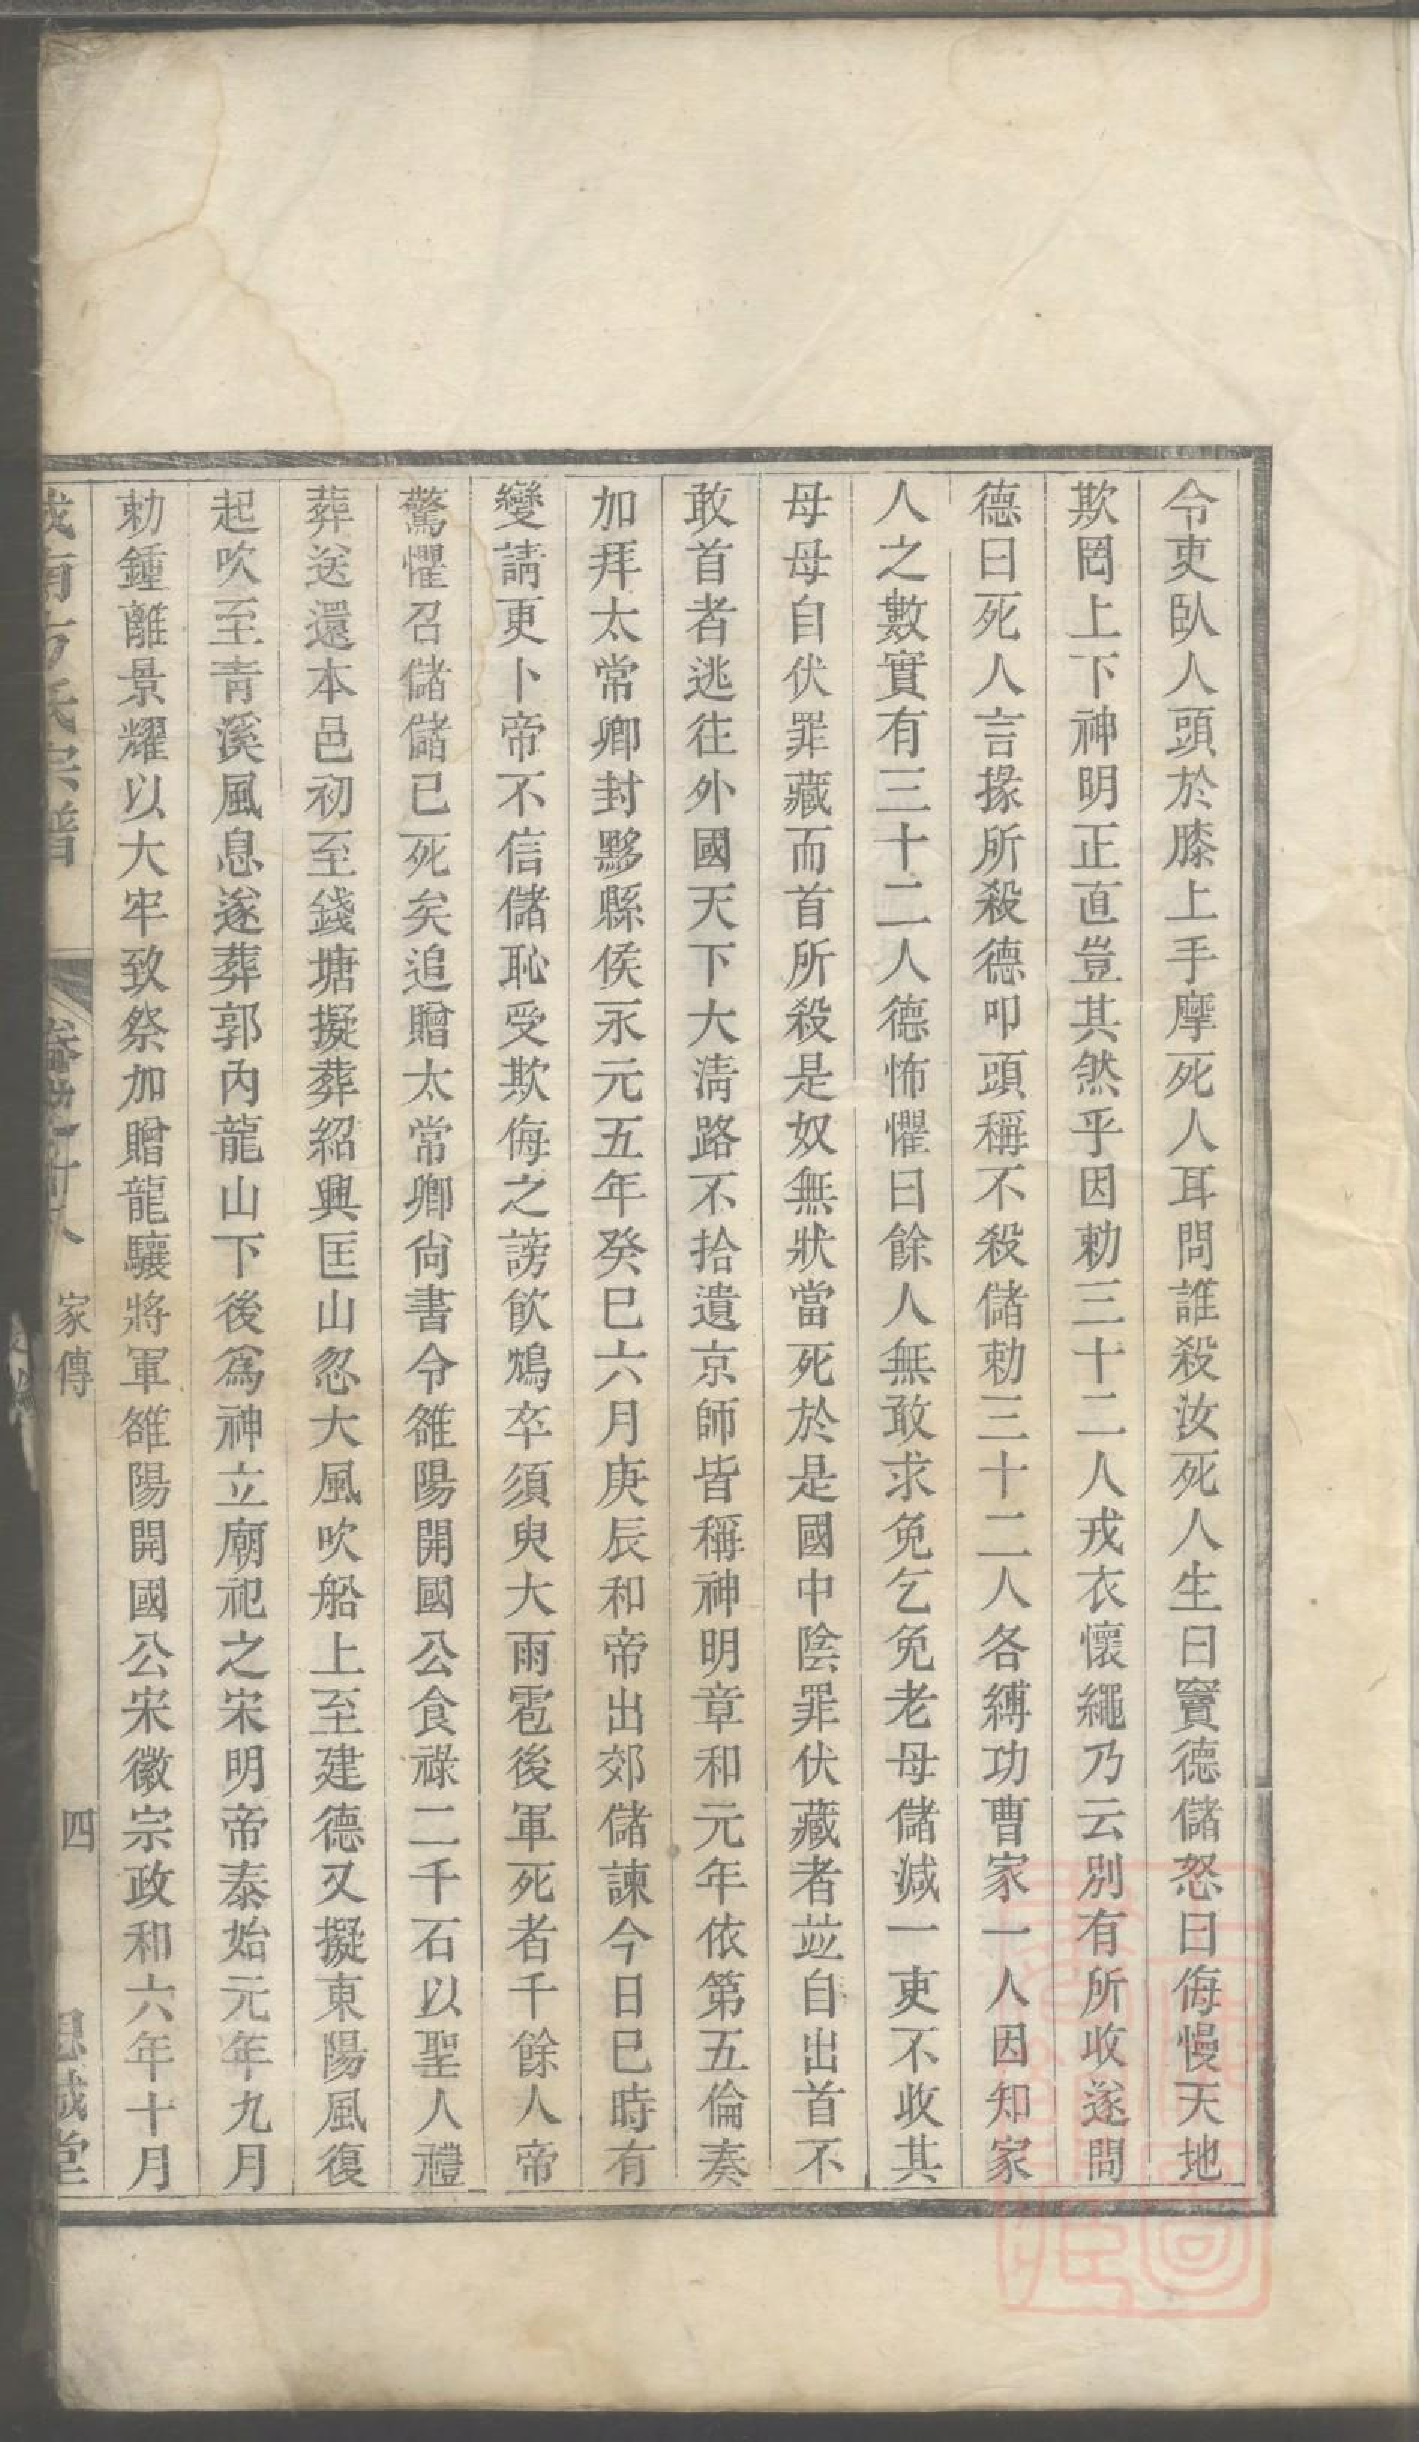 令吏臥人頭於膝上手摩死人耳問誰殺汝死人生曰竇德儲怒曰侮慢天地
欺罔上下神明正直豈其然乎因勅三十二人戎衣懷繩乃云別有所收遂問
德曰死人言掾所殺德叩頭稱不殺儲勅三十二人各縛功曹家一人因知家
人之數實有三十二人德怖懼曰餘人無敢求免乞免老母儲減一吏不收其
母母自伏罪藏而首所殺是奴無狀當死於是國中陰罪伏藏者並自出首不
敢首者逃往外國天下大淸路不拾遺京師皆稱神明章和元年依第五倫奏
加拜太常卿封黟縣侯永元五年癸巳六月庚辰和帝出郊儲諫今日巳時有
變請更卜帝不信儲恥受欺侮之謗飮鴆卒須臾大雨雹後軍死者千餘人帝
驚懼召儲儲已死矣追贈太常卿尙書令雒陽開國公食祿二千石以聖人禮
葬送還本邑初至錢塘擬葬紹興匡山忽大風吹船上至建德又擬東陽風復
起吹至靑溪風息遂葬郭內龍山下後爲神立廟祀之宋明帝泰始元年九月
勅鍾離景耀以大牢致祭加贈龍驤將軍雒陽開國公宋徽宗政和六年十月
方氏宗譜 家傳 四 堂